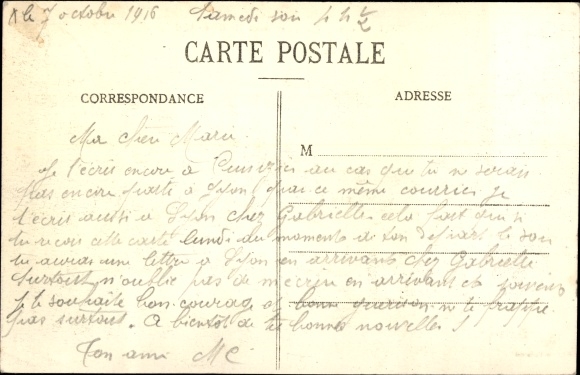 le 7 octobre 1916 Samedi soir 4 h ½
CARTE POSTALE
CORRESPONDANCE
ADRESSE
M
Ma chère Marie
Je t'écris encore à au cas que tu ne serais
pas encore partie à Lyon par ce même courrier je
t'écris aussi à Lyon chez Gabrielle cela fait que si
tu reçois cette carte lundi du moment de ton départ le soir
tu auras une lettre à Lyon en arrivant chez Gabrielle
Surtout n'oublie pas de m'écrire en arrivant et
je te souhaite bon courage et bonne guérison ne te frappe
pas surtout. A bientôt de tes bonnes nouvelles !
Ton ami